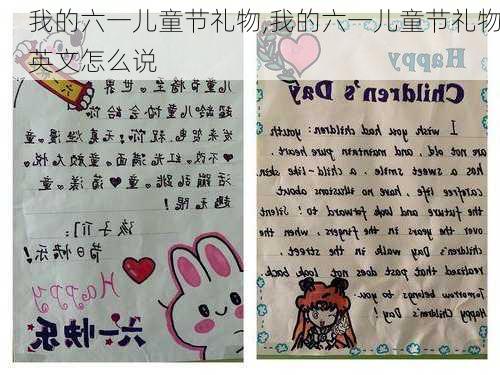 我的六一儿童节礼物,我的六一儿童节礼物
英文怎么说
儿童节悄至。世界
超龄儿童协会给你
发来贺电.祝你:天真烂漫。童
心不改。红光满面。童颜大悦。
活蹦乱跳。童心荡漾。童
趣无限!
孩子们:
节日快乐!
Happy
六一快乐
Happy
Children's Day
I wish you children had youth:
are not old, and maintain and pure heart.
has a sweet smile, a child-like skin.
carefree life, have no illusions about
the future and look and forward to! Silent
over the years in the fingers, when the
children's Day walk in the street,
realized that past does not look back,
Tomorrow belongs to you.
Happy Children's Day!